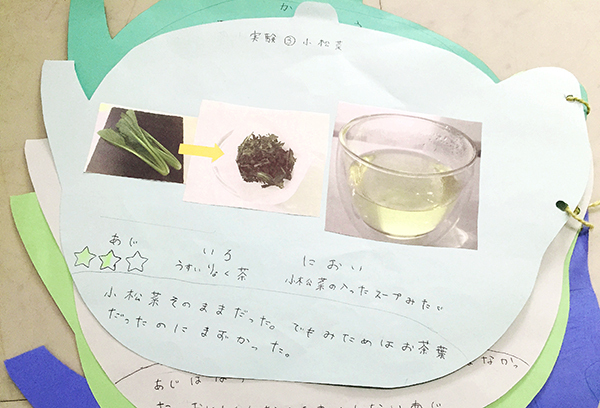 か
実験③小松菜
あじ いろ におい
うすいりょく茶 小松菜の入ったスープみたい
小松菜そのままだった。でもみためはお茶葉
だったのにまずかった。
なかっ
あじはほ